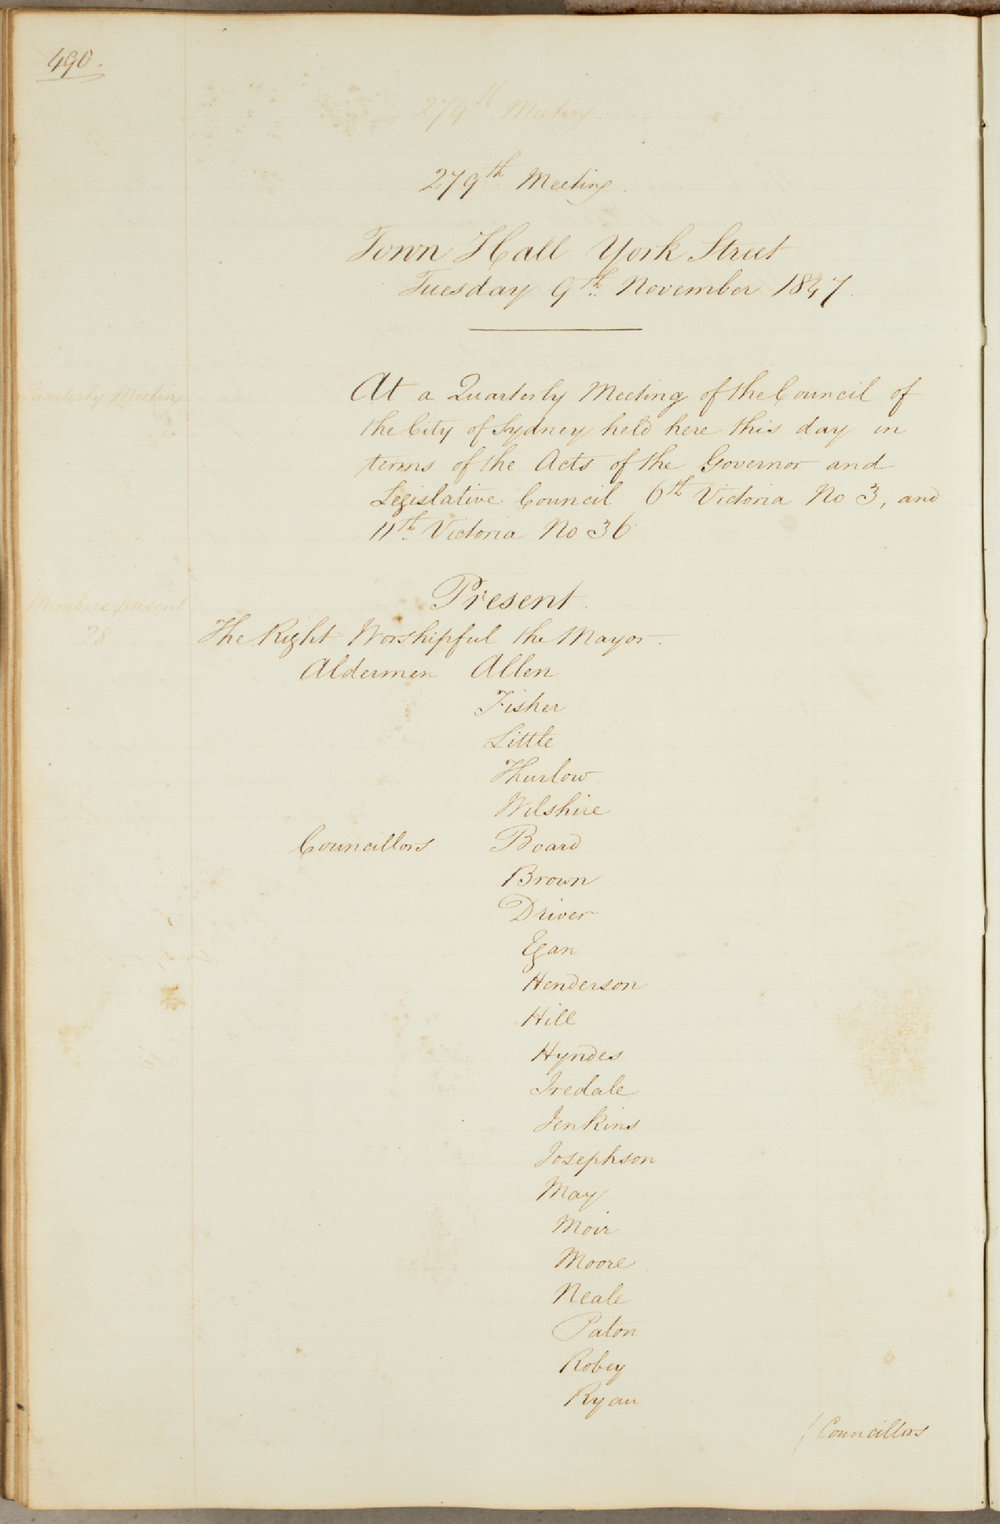 490.
279th Meeting
279th Meeting.
Town Hall York Street
Tuesday 9th November 1847.
Quarterly Meeting
At a Quarterly Meeting of the Council of
the City of Sydney held here this day in
terms of the Acts of the Governor and
Legislative Council 6th Victoria No 3, and
11th Victoria No 36
Present.
Members present
28
The Right Worshipful the Mayor.
Aldermen Allen
Fisher
Little
Thurlow
Wilshire
Councillors Board
Brown
Driver
Egan
Henderson
Hill
Hyndes
Iredale
Jenkins
Josephson
May
Moir
Moore
Neale
Paton
Robey
Ryan
(Councillors